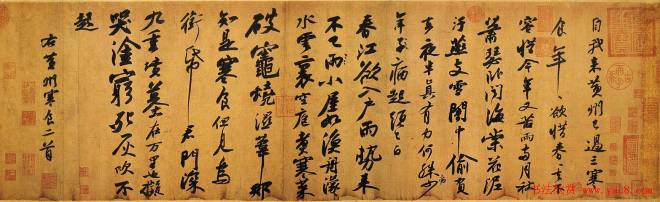 自我來黃州已過三寒
食年〻欲惜春春去不
容惜今年又苦雨兩月秋
蕭瑟卧聞海棠花泥
汙燕支雪闇中偷負
去夜半真有力何殊病少
年子病起頭已白
春江欲入戶雨勢來
不已雨小屋如漁舟濛〻
水雲裏空庖煮寒菜
破竈燒濕葦那
知是寒食但見烏
銜帋君門深
九重墳墓在万里也擬
哭塗窮死灰吹不
起
右黃州寒食二首